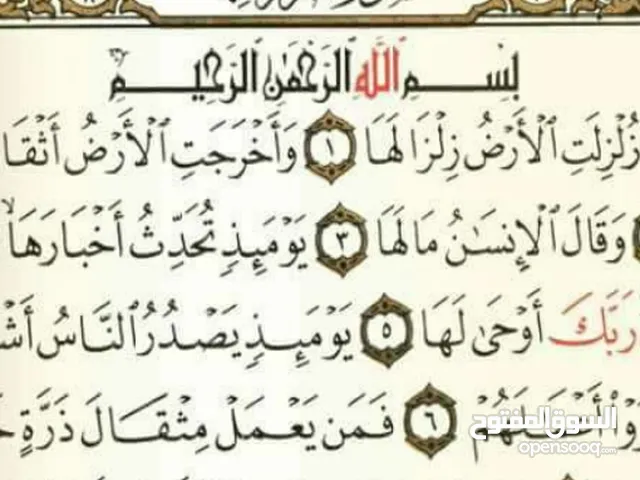 بِسْمِ ٱللَّهِ ٱلرَّحْمَٰنِ ٱلرَّحِيمِ
زُلْزِلَتِ ٱلْأَرْضُ زِلْزَالَهَا ١ وَأَخْرَجَتِ ٱلْأَرْضُ أَثْقَا
وَقَالَ ٱلْإِنسَٰنُ مَا لَهَا ٣ يَوْمَئِذٍ تُحَدِّثُ أَخْبَارَهَا
رَبَّكَ أَوْحَىٰ لَهَا ٥ يَوْمَئِذٍ يَصْدُرُ ٱلنَّاسُ أَشْ
وْا۟ أَعْمَٰلَهُمْ ٦ فَمَن يَعْمَلْ مِثْقَالَ ذَرَّةٍ خَ
السوق المفتوح
opensooq.com